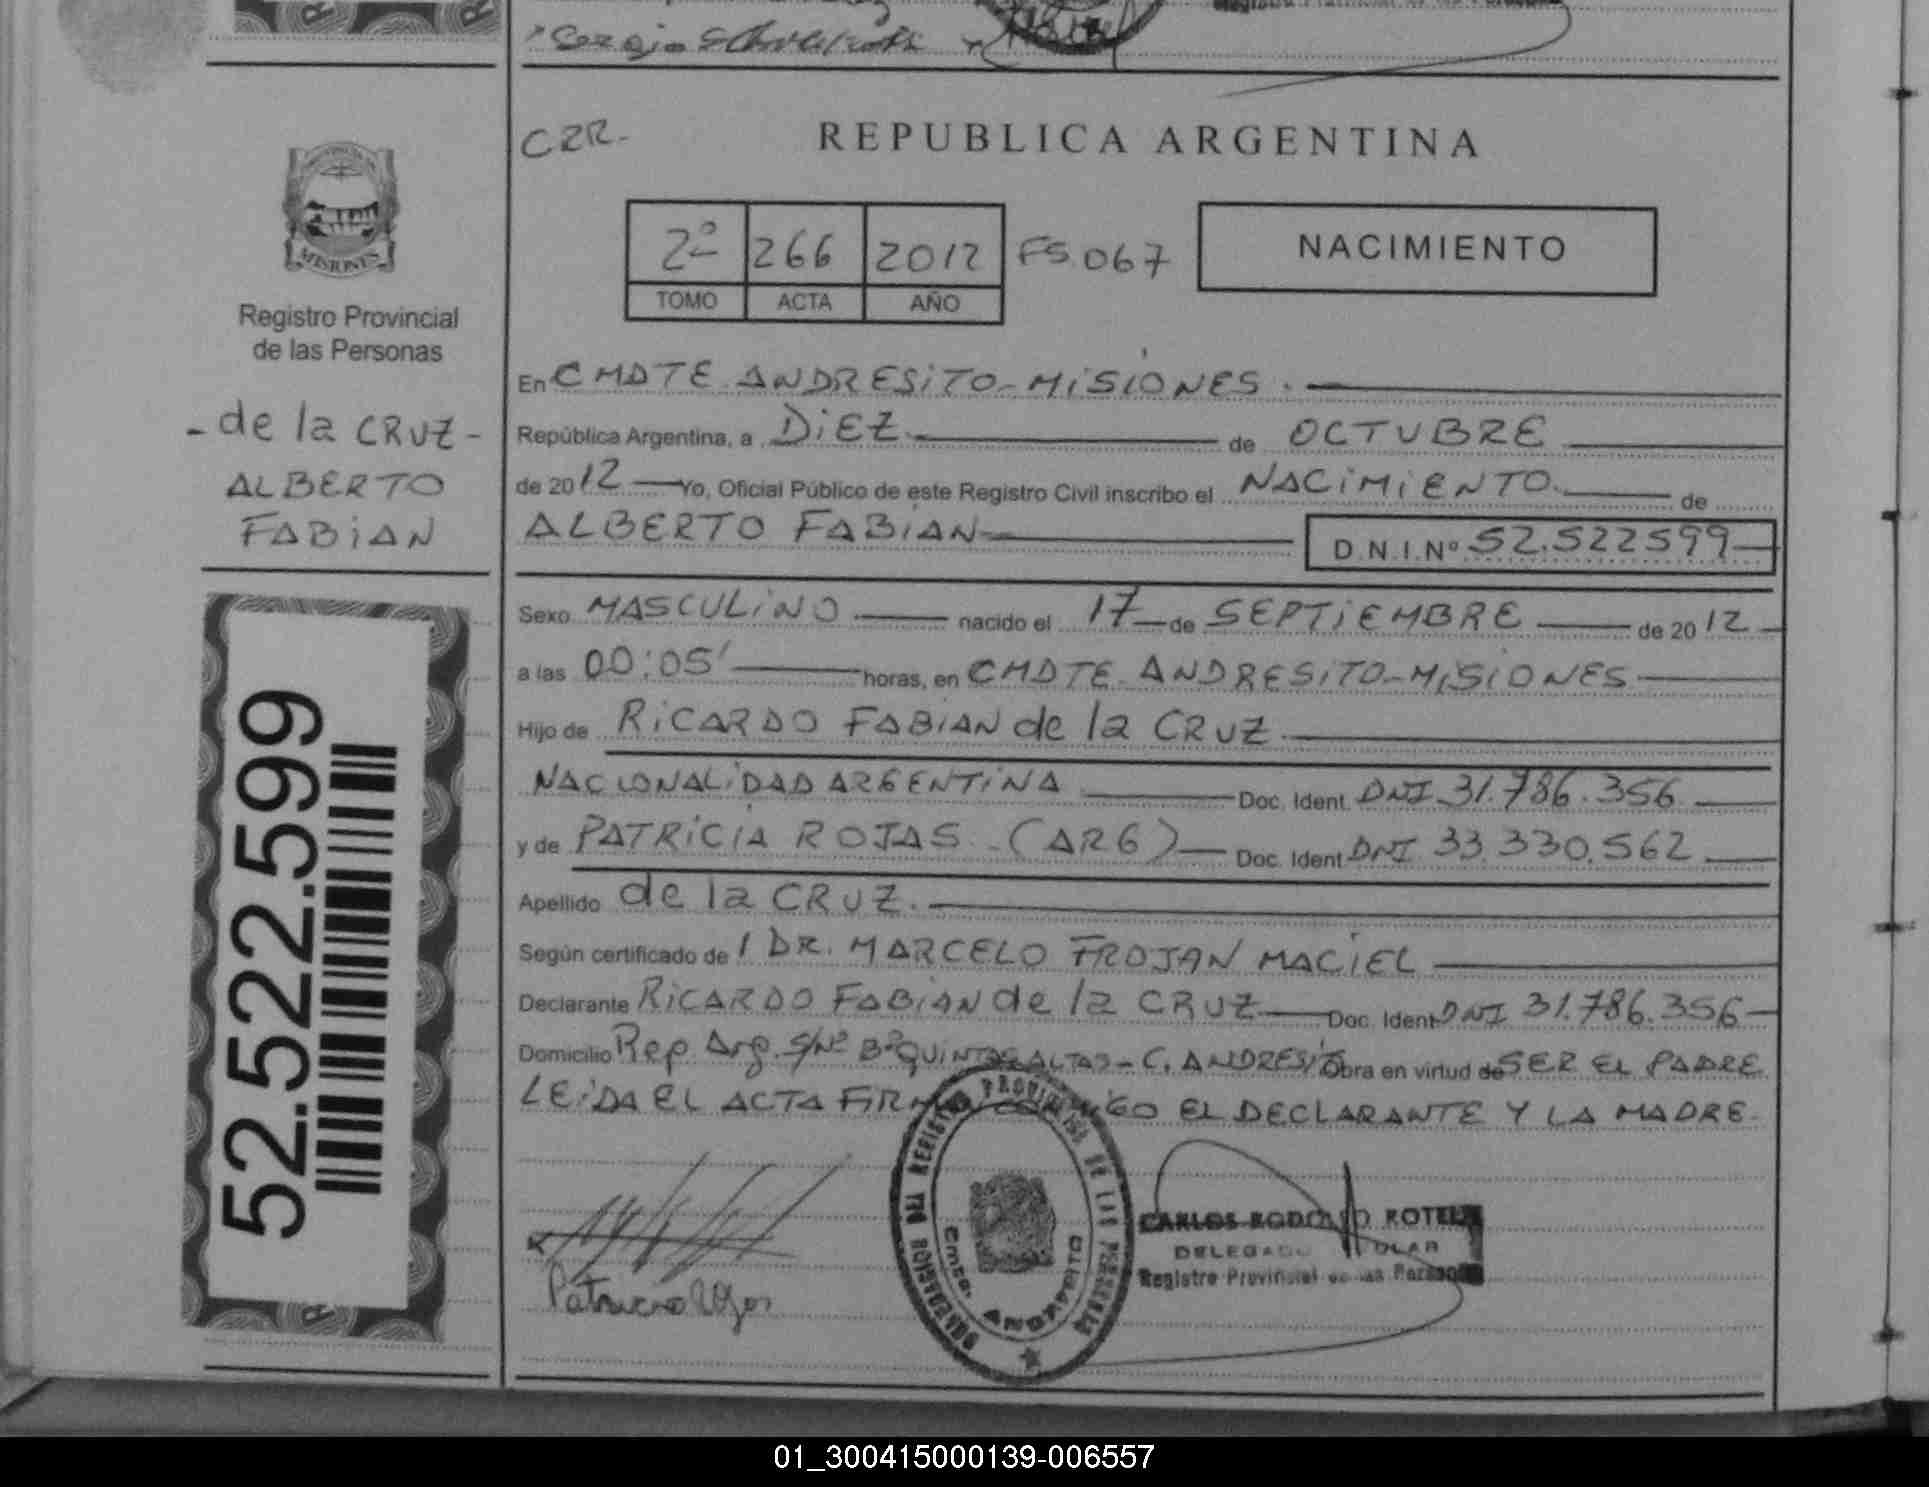 Sergio
CRR-
REPUBLICA ARGENTINA
2º 266 2012 FS.067
TOMO ACTA AÑO
NACIMIENTO
MISIONES
Registro Provincial
de las Personas
- de la CRUZ -
ALBERTO
FABIAN
En CMDTE ANDRESITO-MISIONES.
República Argentina, a DIEZ de OCTUBRE
de 2012 Yo, Oficial Público de este Registro Civil inscribo el NACIMIENTO de
ALBERTO FABIAN D.N.I.Nº 52.522599
Sexo MASCULINO nacido el 17 de SEPTIEMBRE de 2012
a las 00:05' horas, en CMDTE ANDRESITO-MISIONES
Hijo de RICARDO FABIAN de la CRUZ
NACIONALIDAD ARGENTINA Doc. Ident. DNI 31.786.356
y de PATRICIA ROJAS - (ARG) Doc. Ident DNI 33.330.562
Apellido de la CRUZ.
Según certificado de / DR. MARCELO FROJAN MACIEL
Declarante RICARDO FABIAN de la CRUZ Doc. Ident DNI 31.786.356
Domicilio Rep. Arg. S/Nº Bº QUINTAS ALTAS - C. ANDRESITO Obra en virtud de SER EL PADRE
LEIDA EL ACTA FIRMAN CONMIGO EL DECLARANTE Y LA MADRE.
52.522.599
DELEGACION DEL REGISTRO PROVINCIAL DE LAS PERSONAS
Cmte. ANDRESITO
CARLOS RODOLFO ROTELA
DELEGADO TITULAR
Registro Provincial de las Personas
01_300415000139-006557